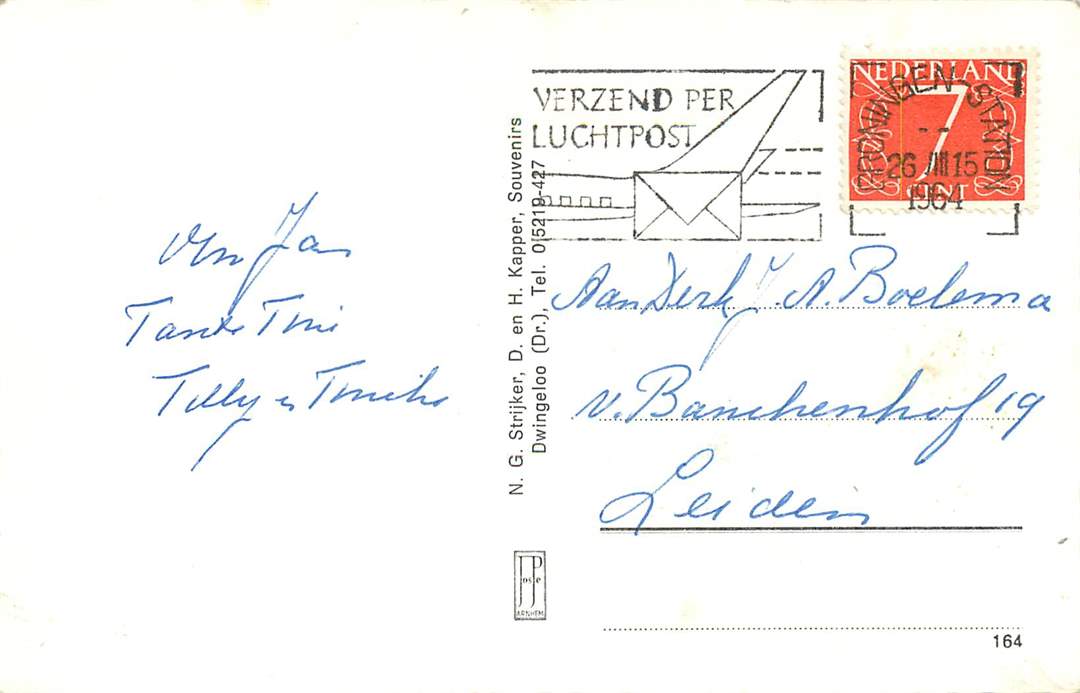 Om Jan
Tante Tini
Tilly en Tineke
N. G. Strijker, D. en H. Kapper, Souvenirs
Dwingeloo (Dr.), Tel. 0 5219-427
JosPé
ARNHEM
VERZEND PER
LUCHTPOST
NEDERLAND
7
CENT
GRONINGEN-STATION
26 III 15
1964
Aan Derk J. A. Boelema
v. Banchenhof 19
Leiden
164